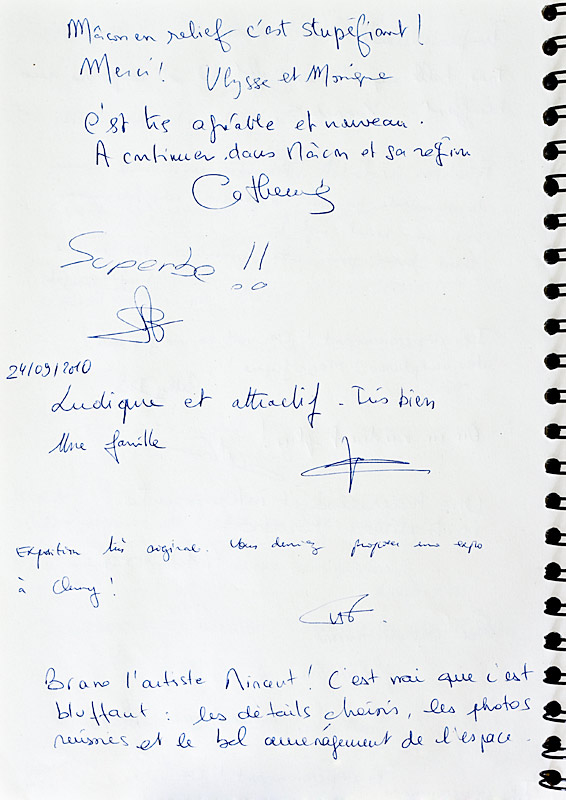 Mâcon en relief c'est stupéfiant !
Merci ! Ulysse et Monique
C'est très agréable et nouveau.
A continuer dans Mâcon et sa région
Superbe !!
24/09/2010
Ludique et attractif - Très bien
Une famille
Exposition très original. Vous devriez proposer une expo
à Cluny !
Bravo l'artiste ! C'est vrai que c'est
bluffant : les détails choisis, les photos
réussies et le bel aménagement de l'espace.